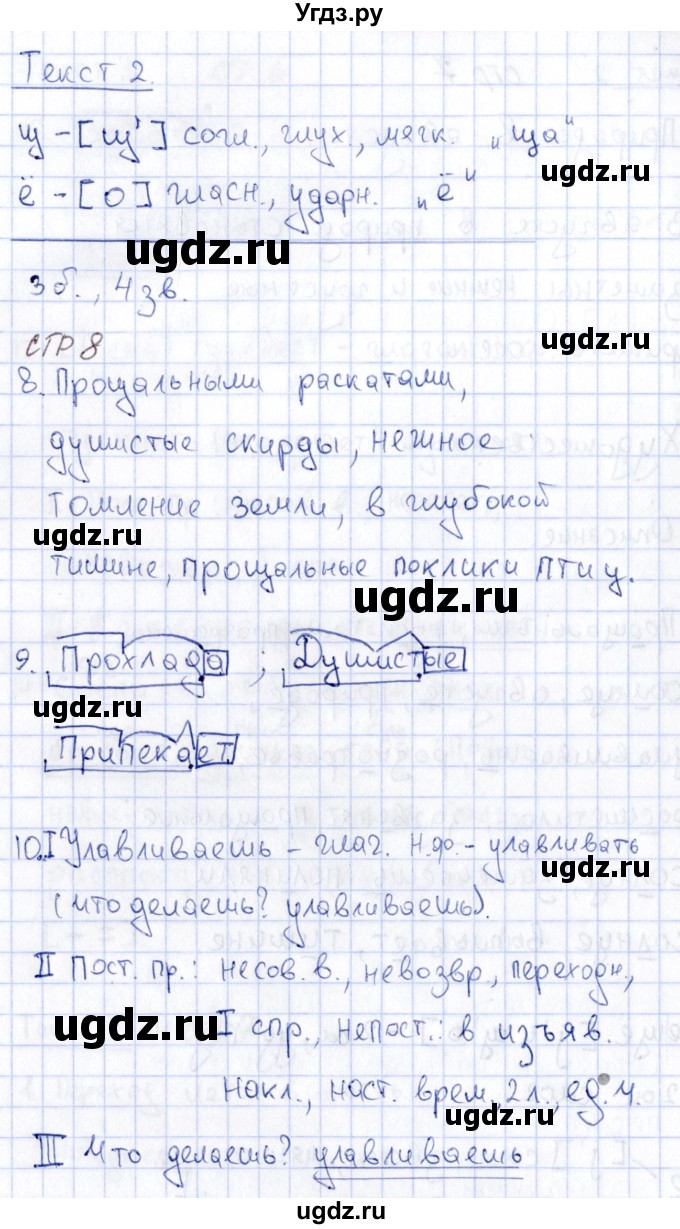 Угдз.ру
Текст 2.
щ - [щ'] согл., глух., мягк. „ща"
ё - [о] гласн., ударн. „ё"
ugdz.ru
ugdz.ru
3 б., 4 зв.
СТР 8
8. Прощальными раскатами,
душистые скирды, нежное
томление земли, в глубокой
ugdz.ru
тишине, прощальные поклики птиц.
ugdz.ru
9. Прохлада ; Душистые
ugdz.ru
Припекает
10. I Улавливаешь – глаг. Н.ф. - улавливать
(что делаешь? улавливаешь).
II Пост. пр.: несов. в., невозвр., переходн.,
ugdz.ru
I спр., непост.: в изъяв.
накл., наст. врем., 2 л., ед. ч.
ugdz.ru
III Что делаешь? улавливаешь
ugdz.ru